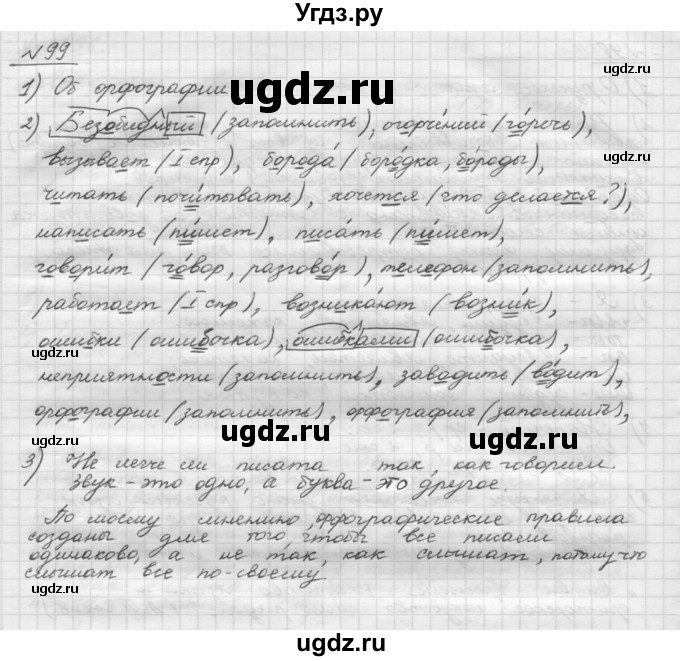 Угдз.ру
№99
1) Об орфографии
2) Безобидный (запомнить), огорчённий (горечь),
вызывает (I спр), борода́ (боро́дка, бо́роды),
читать (почи́тывать), хочется (что делается?),
написать (пи́шет), писа́ть (пи́шет),
говори́т (го́вор, разгово́р), телефон (запомнить),
работает (I спр), возника́ют (возни́к),
ошибки (ошибочка), ошибками (ошибочка),
неприятности (запомнить), заводить (во́дит),
орфографии (запомнить), орфография (запомнить),
3) Не легче ли писата так, как говорим.
Звук - это одно, а буква - это другое.
По моему мнению, орфографические правила
созданы для того, чтобы все писали
одинаково, а не так, как слышат, потому что
слышат все по-своему
ugdz.ru
ugdz.ru
ugdz.ru
ugdz.ru
ugdz.ru
ugdz.ru
ugdz.ru
ugdz.ru
ugdz.ru
ugdz.ru
ugdz.ru